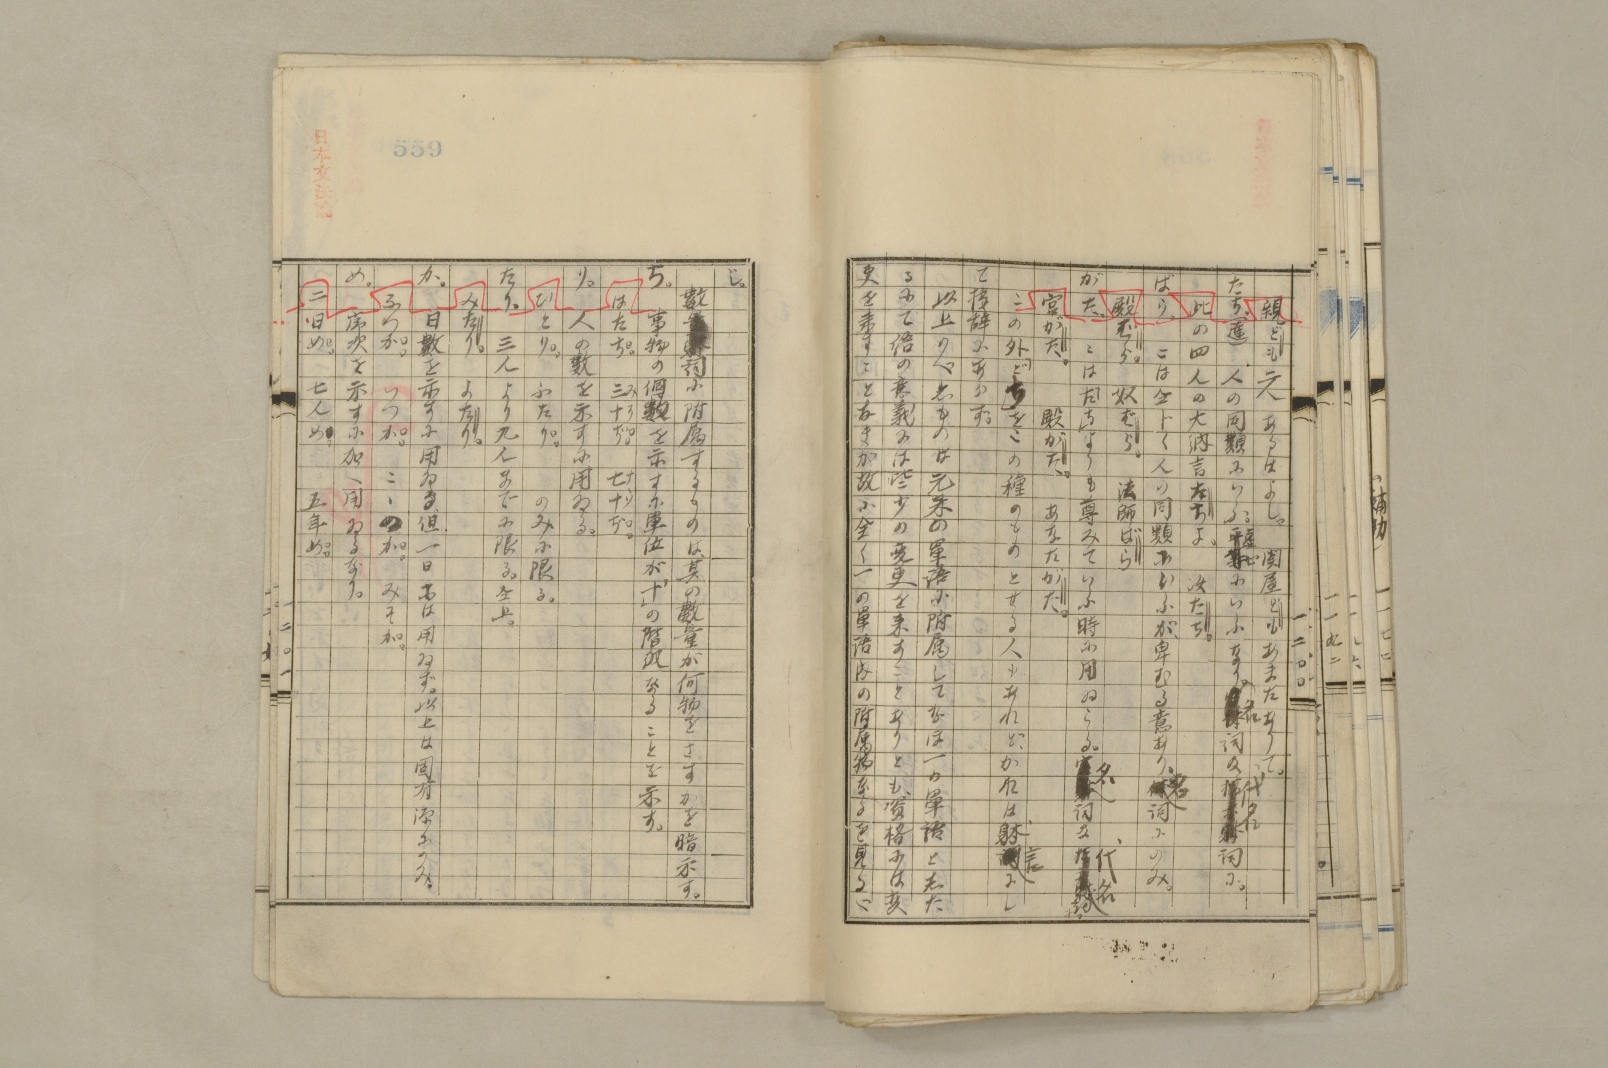 親ども元あらばよし。関屋どもあまたありて。
たち(達)、人の同類にいふ。
此の四人の大納言たちよ。汝たち。
ばら、こは全じく人の同類にいふが、卑むる意あり、名詞にのみ。
殿ばら。奴ばら。法師ばら
がた、こはたちよりも尊みていふ時に用ゐらる。名詞及代名詞。
宮がた。殿がた。あなたがた。
この外どちをこの種のものとせる人もあれど、かれは体言にし
て接辞にあらず。
以上のべしものは元来の単語に附属してなほ一の単語としたる
るにて語の意義には些少の変更を来すことありとも、資格には変
更を来すことなきが故に全く一の単語内の附属物なるを見るべ
し。
数詞に附属するものは、其の数量が何物をさすかを暗示す。
ち。事物の個数を示すに単位が「十」の階段なることを示す。
はたち。三十ぢ。七十ぢ。
り。人の数を示すに用ゐる。
ひとり。ふたり。のみに限る。
たり。三人より九人までに限る。全上。
みたり。よたり。
か。日数を示すに用ゐる、但一日には用ゐず。以上は固有語にのみ。
ふつか。いつか。ここのか。みそか。
め。序次を示すに加へ用ゐるなり。
二日め。七人め。五年め。
559
日本文法論
一二〇〇
一二〇一
(補助)